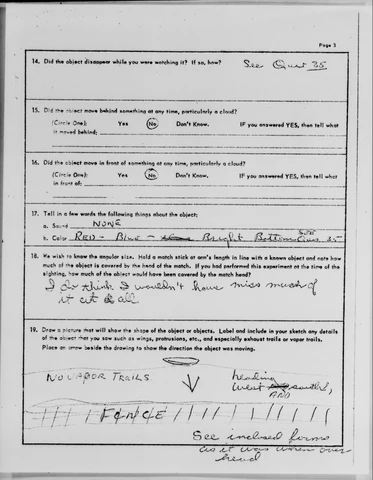 Page 3
14. Did the object disappear while you were watching it? If so, how?
See Quest 35
15. Did the object move behind something at any time, particularly a cloud?
(Circle One): Yes No Don't Know. IF you answered YES, then tell what
it moved behind:
16. Did the object move in front of something at any time, particularly a cloud?
(Circle One): Yes No Don't Know. IF you answered YES, then tell what
in front of:
17. Tell in a few words the following things about the object:
a. Sound NONE
b. Color RED - Blue - Bright Bottom SEE Ques. 35
18. We wish to know the angular size. Hold a match stick at arm's length in line with a known object and note how
much of the object is covered by the head of the match. If you had performed this experiment at the time of the
sighting, how much of the object would have been covered by the match head?
I do think I wouldn't have miss much of
it at all.
19. Draw a picture that will show the shape of the object or objects. Label and include in your sketch any details
of the object that you saw such as wings, protrusions, etc., and especially exhaust trails or vapor trails.
Place an arrow beside the drawing to show the direction the object was moving.
NO VAPOR TRAILS
heading
West south,
AND
FENCE
See inclosed forms
as it was when over
head